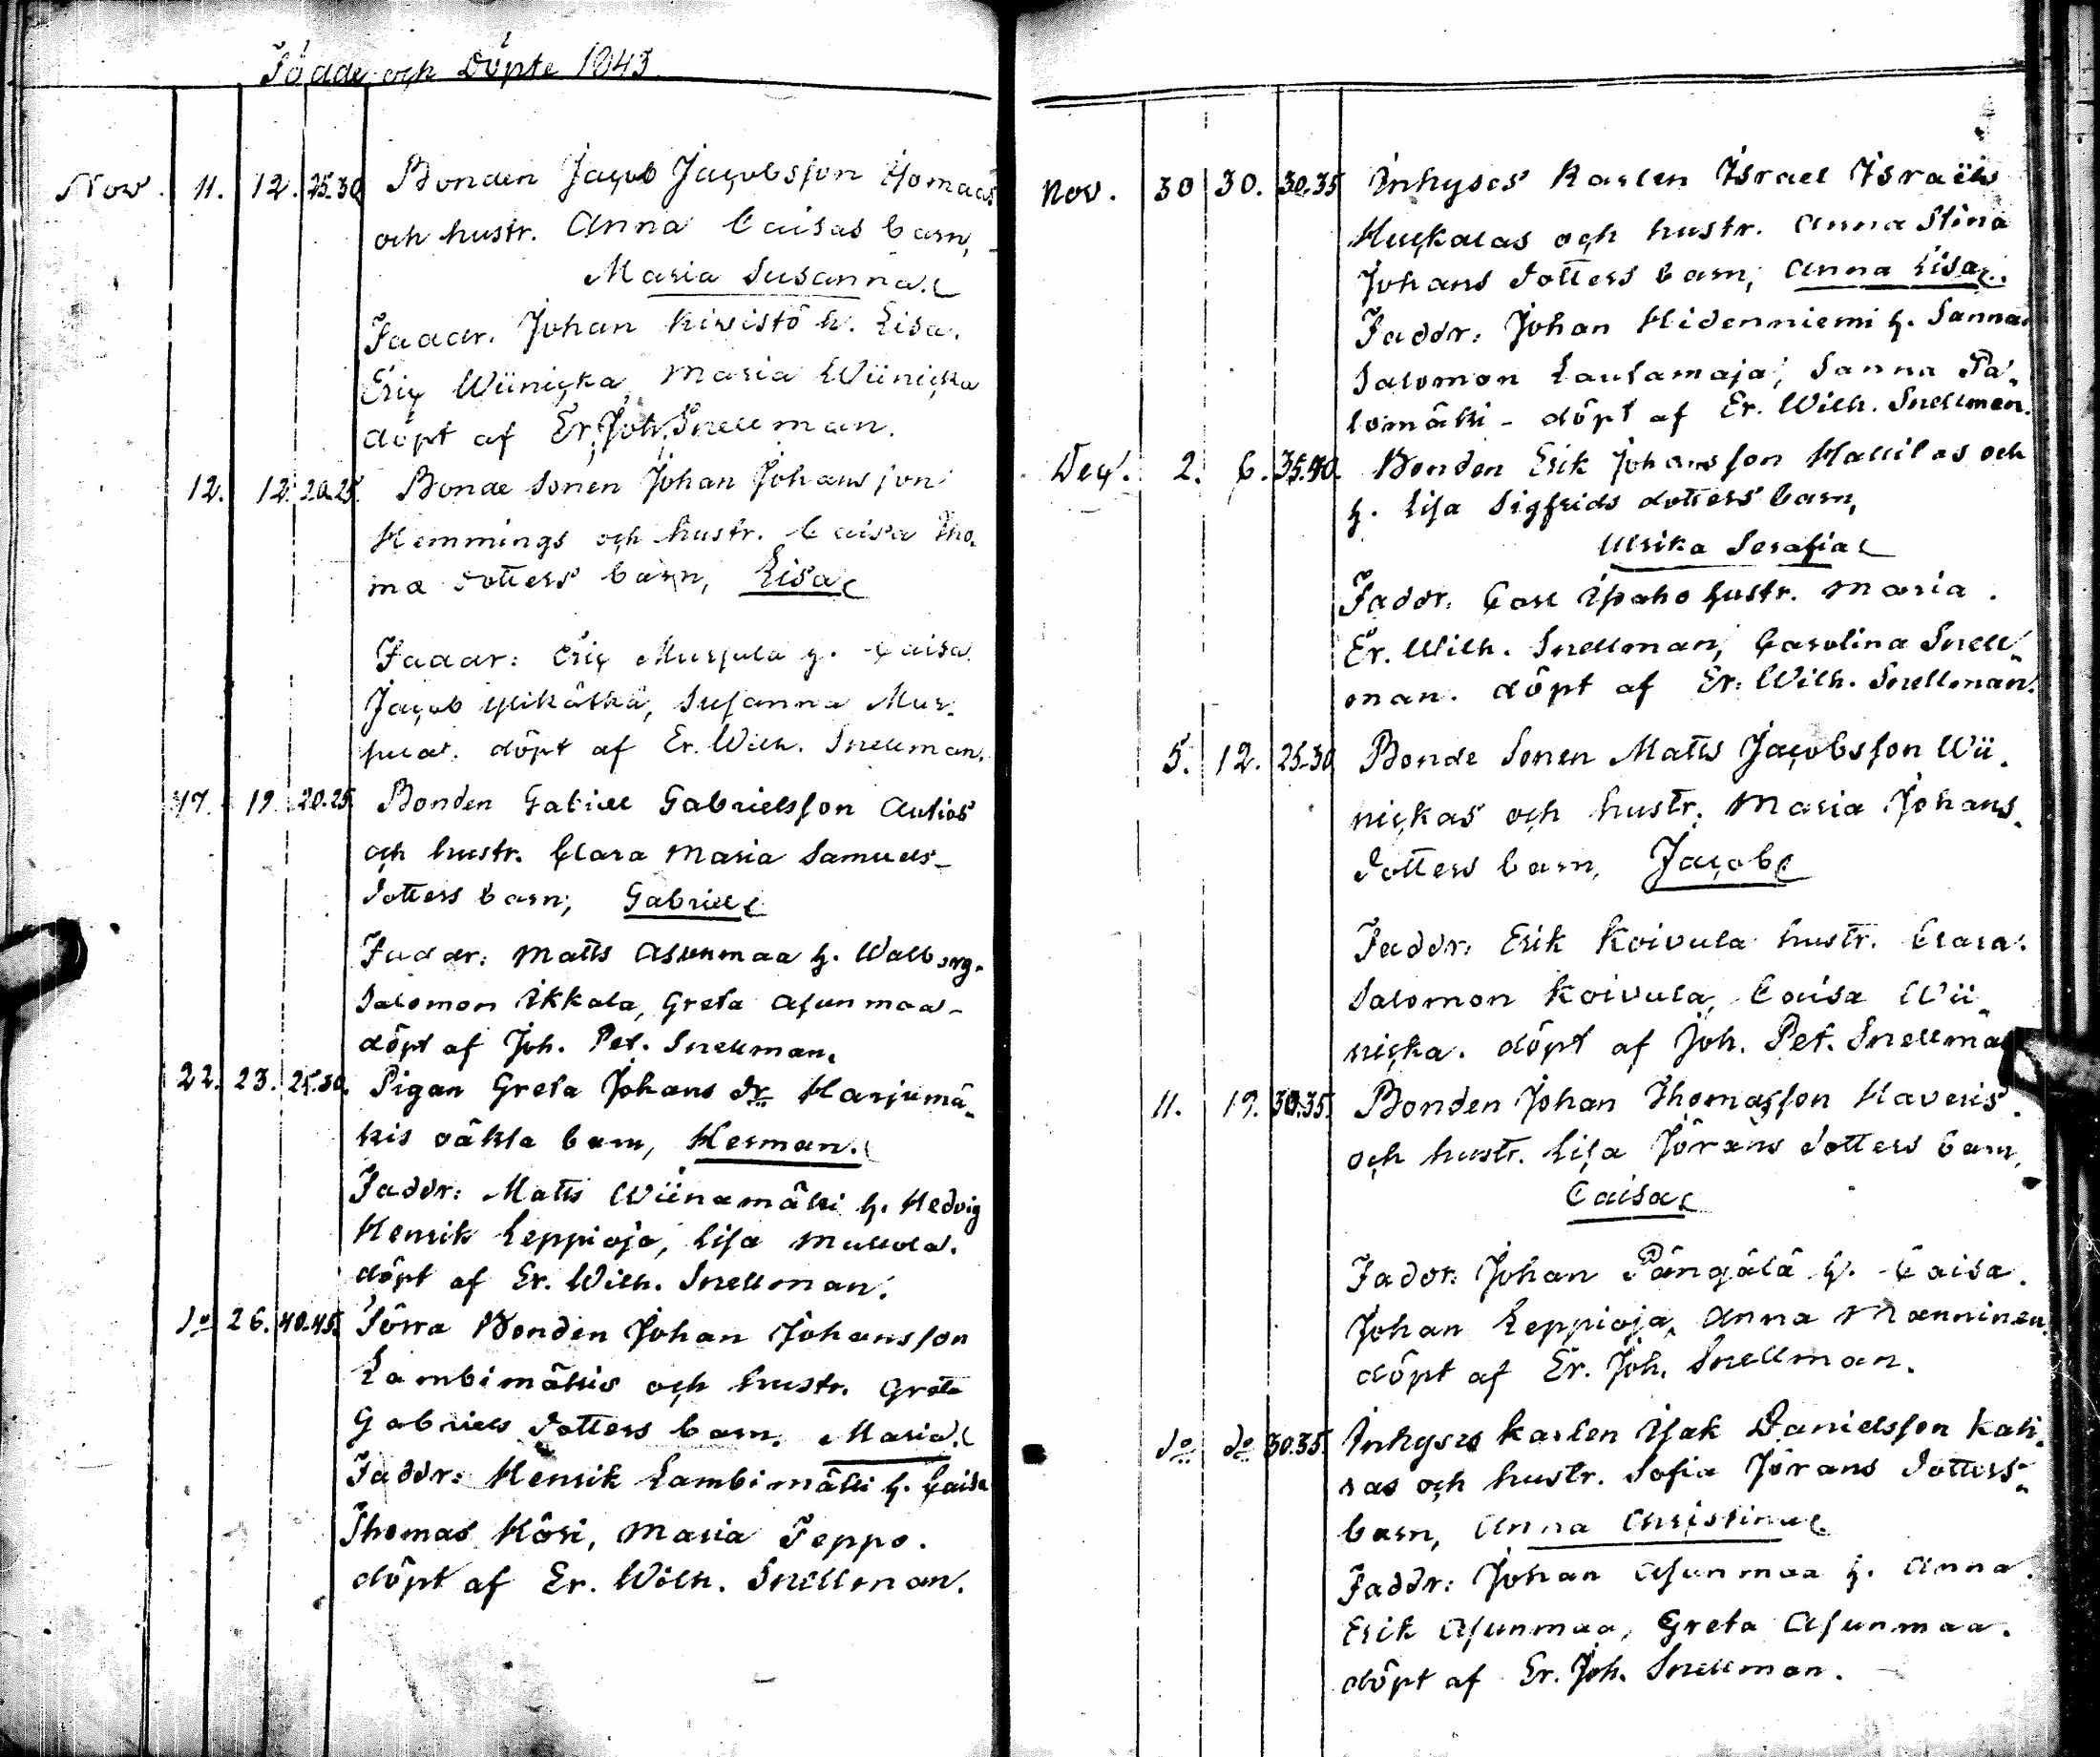 Födde och Döpte 1843
Nov. 11. 12. 25.30 Bonden Jacob Jacobsson Homaas
och hustr. Anna Caisas barn,
Maria Susanna.
Faddr. Johan Kivistö h. Lisa.
Eric Wiinicka, Maria Wiinicka
döpt af Er. Joh. Snellman.
12. 12. 20.25. Bonde Sonen Johan Johansson
Hemmings och hustr. Caisa Tho-
mæ dotters barn, Lisa
Faddr: Eric Murjula h. Caisa.
Jacob Ylikätkä, Susanna Mur-
jula. döpt af Er. Wilh. Snellman.
17. 19. 20.25. Bonden Gabriel Gabrielsson Autios
och hustr. Clara Maria Samuels-
dotters barn, Gabriel
Faddr: Matts Asunmaa h. Walborg.
Salomon Ikkala, Greta Asunmaa-
döpt af Joh. Pet. Snellman.
22. 23. 25.30. Pigan Greta Johans dr Harjumä-
kis oäkta barn, Herman.
Faddr: Matts Wiinamäki h. Hedvig
Henrik Leppioja, Lisa Mullola.
döpt af Er. Wilh. Snellman.
do 26. 40.45. Torra Bonden Johan Johansson
Lambimäkis och hustr. Greta
Gabriels dotters barn, Maria.
Faddr: Henrik Lambimäki h. Caisa
Thomas Käri, Maria Teppo.
döpt af Er. Wilh. Snellman.
Nov. 30 30. 30.35 Inhyses Karlen Israel Israels
Huckalas och hustr. Anna Stina
Johans dotters barn, Anna Lisa.
Faddr: Johan Hidenniemi h. Sanna.
Salomon Laulamaja, Sanna Pa-
lomäki - döpt af Er. Wilh. Snellman.
Dec. 2. 6. 35.40. Bonden Erik Johansson Hallilas och
h. Lisa Sigfrids dotters barn,
Ulrika Serafia
Faddr: Carl Ipaho hustr. Maria.
Er. Wilh. Snellman, Carolina Snell-
man. döpt af Er. Wilh. Snellman.
5. 12. 25.30 Bonde Sonen Matts Jacobsson Wii-
nickas och hustr. Maria Johans-
dotters barn, Jacob
Faddr: Erik Koivula hustr. Clara.
Salomon Koivula, Caisa Wii-
nicka. döpt af Joh. Pet. Snellman
11. 19. 30.35. Bonden Johan Thomasson Haveris
och hustr. Lisa Jörans dotters barn,
Caisa
Faddr: Johan Pängälä h. Caisa.
Johan Leppioja, Anna Manninen.
döpt af Er. Joh. Snellman.
do do 30.35. Inhyses karlen Isak Danielsson Kah-
ras och hustr. Sofia Jörans dotters-
barn, Anna Christina
Faddr: Johan Asunmaa h. Anna.
Erik Asunmaa, Greta Asunmaa.
döpt af Er. Joh. Snellman.